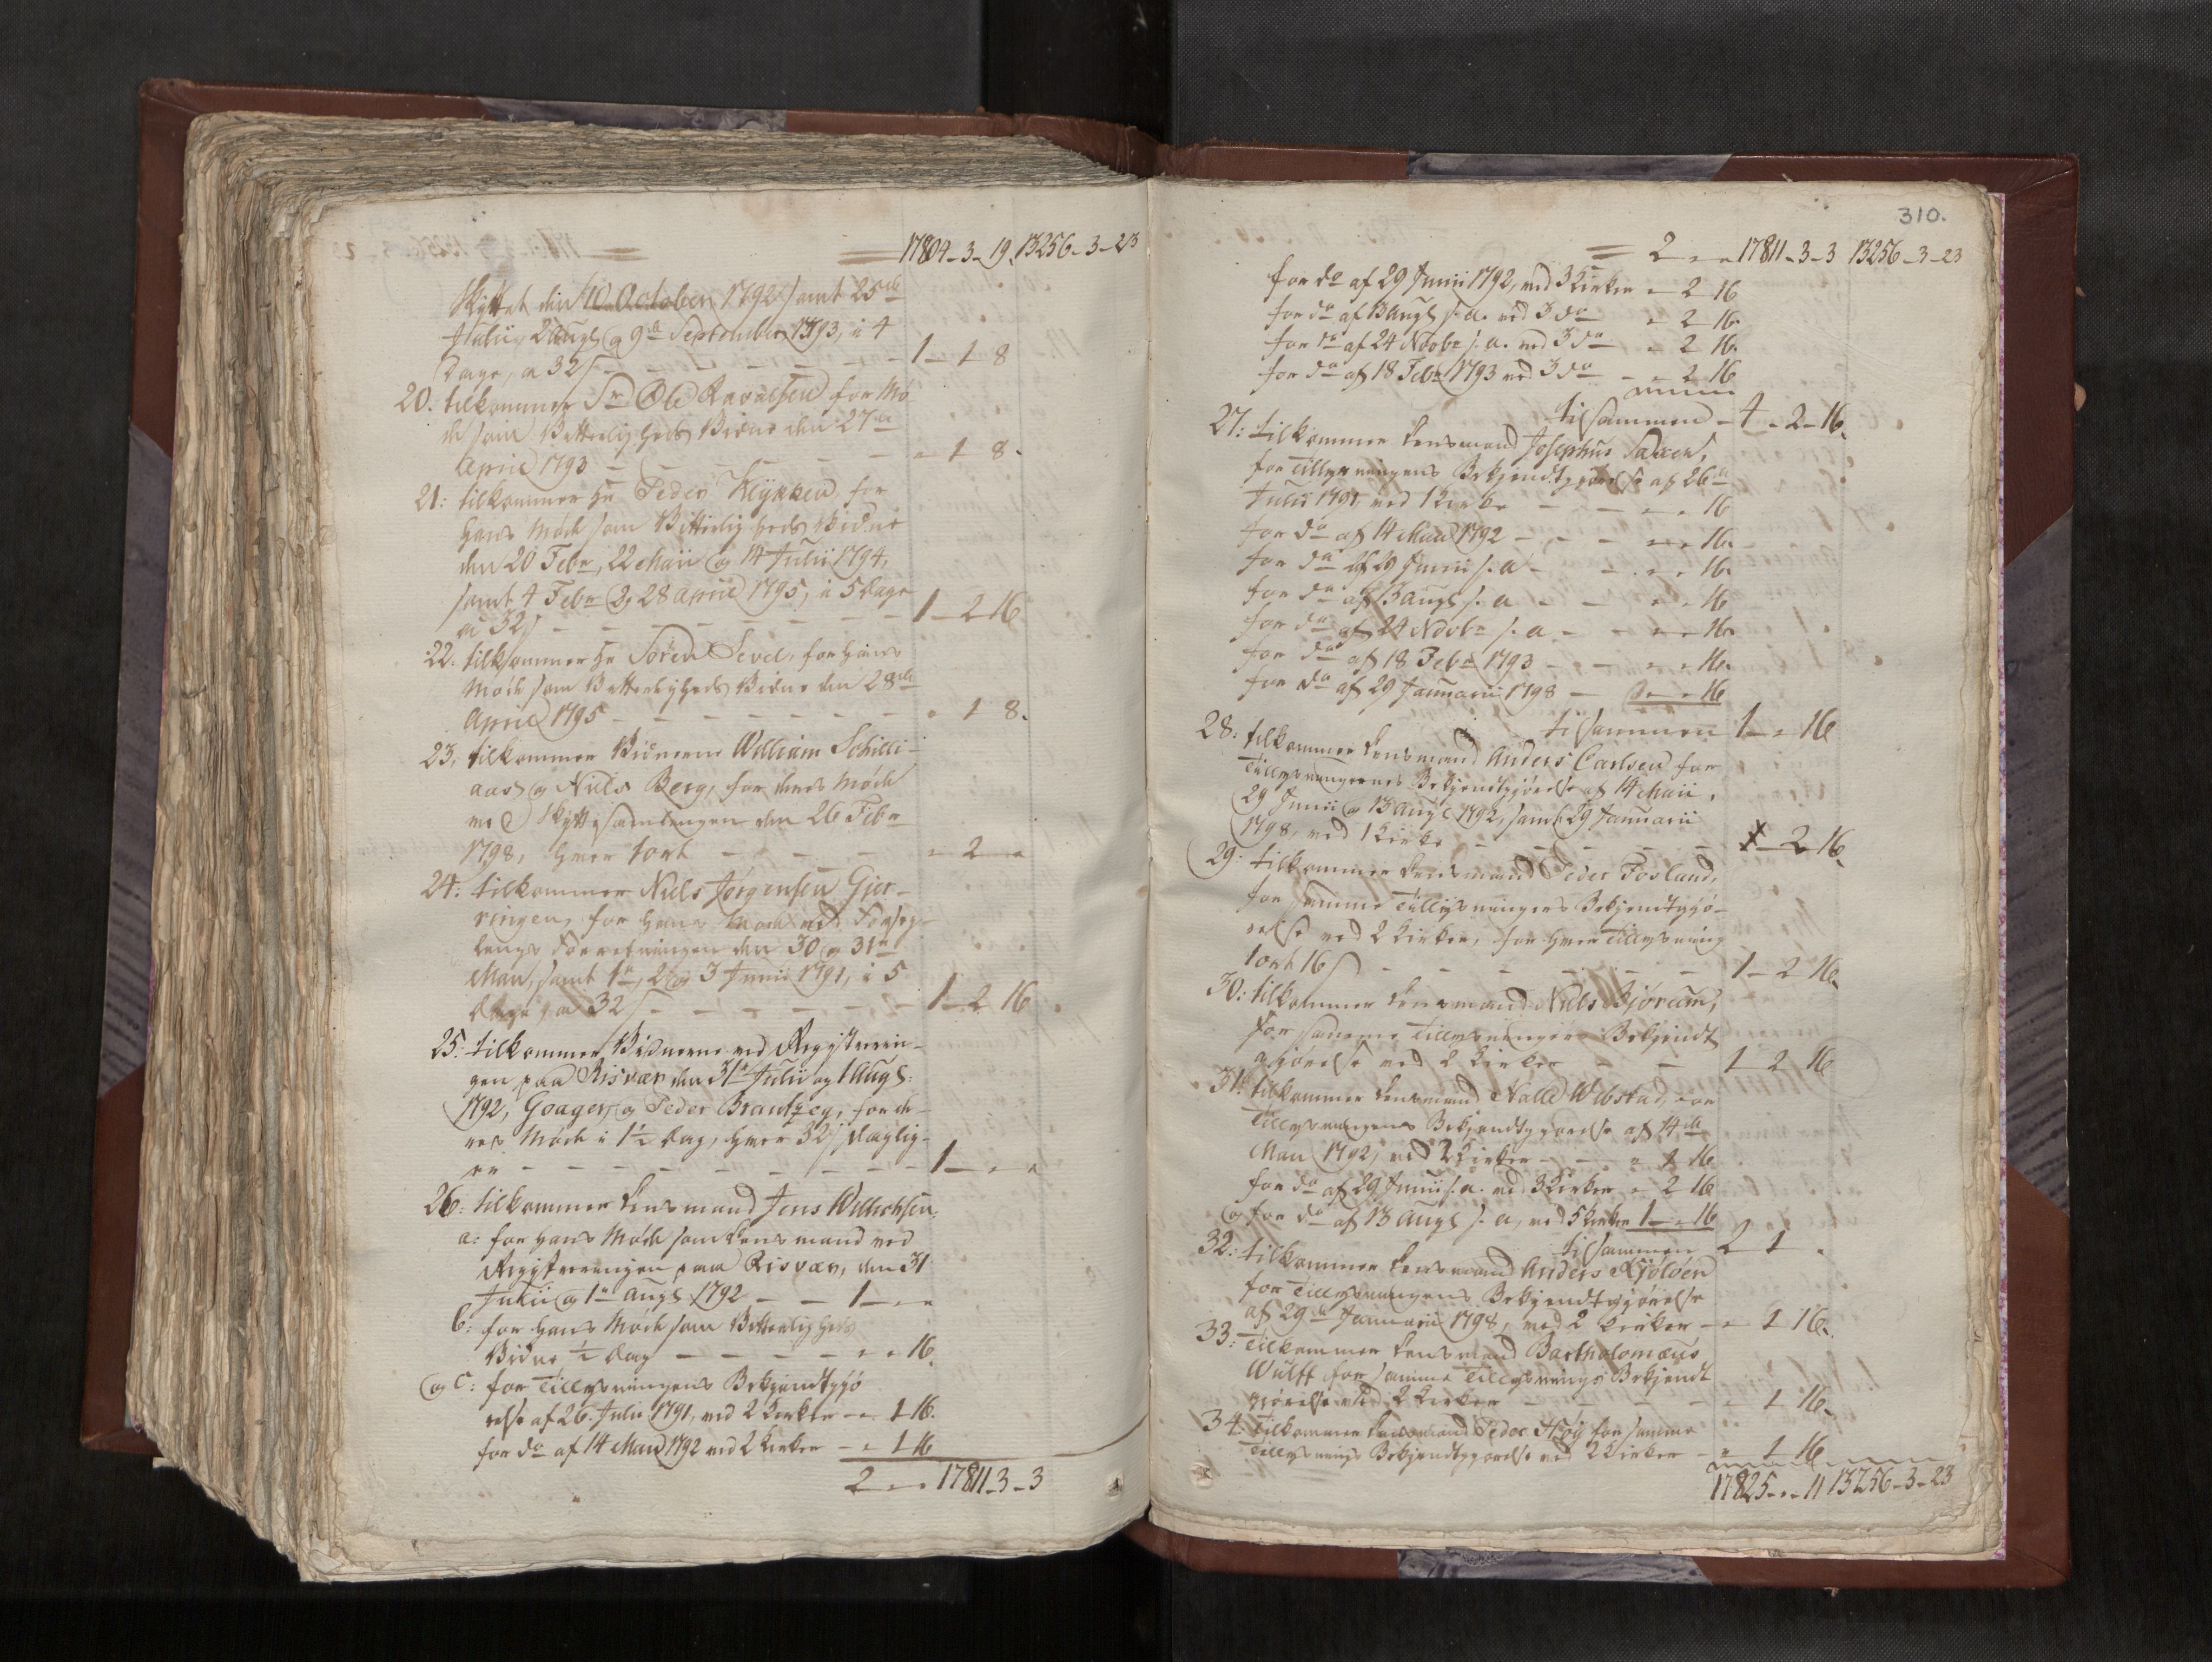 17804 - 3 - 19. 13256 - 3 - 23
Skiftet den 10 October 1792, samt 25de
Julii, 2 Augs. og 9de September 1793, i 4
Dage, a 32 s - 1 - 1 8
20. tilkommer Sr. Ole for Mø-
de som Vitterligheds Vidne den 27de
April 1793 - " 1 8.
21: tilkommer Hr. Peder Klykken, for
hans Møde som Vitterligheds Vidne
den 20 Febr., 22 Maii og 14 Julii 1794,
samt 4 Febr. og 28 April 1795, i 5 Dage
a 32 s - 1 - 2 16
22. tilkommer Hr. Sören Sevel, for hans
Møde som Vitterligheds Vidne den 28de
April 1795 - " 1 8.
23. tilkommer Vidnerne William Schilli-
aas og Niels Berg, for deres Møde
ved Skiftesamlingen den 26 Febr.
1798, hver 1 ort - " 2 "
24: tilkommer Niels Jørgensen Gjer-
ringen, for hans Møde ved Forseg-
lings Forretningen den 30 og 31te
Maii, samt 1te, 2 og 3 Junii 1791, i 5
Dage, a 32 s - 1 - 2 16
25: tilkommer Vidnerne ved Registrerin-
gen paa Risvær den 31te Julii og 1 Augs:
1792, Goager, og Peder Brandzeg, for de-
res Møde i 1½ Dag, hver 32 s daglig-
en - 1 - " "
26: tilkommer Lensmand Jens Wellichsen.
a: for hans Møde som Lensmand ved
Registreringen paa Risvær, den 31
Julii og 1te Augs 1792 - 1 - " "
b: for hans Møde som Vitterligheds
Vidne ½ Dag - " " 16.
og c: for Tillysningens Bekjendtgjø-
relse af 26. Julii 1791, ved 2 Kirker - " 1 16.
for do af 14 Maii 1792 ved 2 Kirker - " 1 16
2 - " " 17811 - 3 - 3
310.
2 " " 17811 - 3 - 3 13256 - 3 - 23
for do af 29 Junii 1792, ved 3 Kirker " 2 16
for do af 13 Augs s. a. ved 3 do " 2 16.
for do af 24 Novbr s. a. ved 3 do " 2 16.
for do af 18 Febr 1793 ved 3 do - " 2 16
tilsammen - 4 - 2 - 16.
27: tilkommer Lensmand Josephus Saxen,
for Tillysningens Bekjendtgjørelse af 26de
Julii 1791, ved 1 Kirke - " " 16
for do af 14 Maii 1792 - " " 16.
for do af 29 Junii s. a - " " 16.
for do af 13 Augs s. a - " " 16
for do af 24 Novbr s. a - " " 16.
for do af 18 Febr 1793 - " " 16.
for do af 29 Januarii 1798 - " " 16
tilsammen 1 - " 16
28: tilkommer Lensmand Anders Carlsen for
Tillysningernes Bekjendtgjørelse af 14 Maii,
29 Junii og 13 Augs 1792, samt 29 Januarii
1798, ved 1 Kirke - " - 2 16.
29: tilkommer Lensmand Peder Fosland,
for samme Tillysningers Bekjendtgjø-
relse ved 2 Kirker, for hver Tillysning
1 ort 16 s - 1 - 2 16.
30: tilkommer Lensmand Niels Bjørum,
for samme Tillysningers Bekjendt
gjørelse ved 2 Kirker - 1 2 16
31: tilkommer Lensmand Nalle Wibstad, for
Tillysningens Bekjendtgjørelse af 14de
Maii 1792, ved 2 Kirker - " 1 16
for do af 29 Junii s. a. ved 3 Kirker " 2 16
og for do af 13 Augs s. a, ved 5 Kirker 1 - " 16
tilsammen 2 1 "
32: tilkommer Lensmand Anders Kjöløen
for Tillysningens Bekjendtgjørelse
af 29de Januarii 1798, ved 2 Kirker - " 1 16.
33: Tilkommer Lensmand Bartholomæus
Wulff for samme Tillysnings Bekjendt
gjørelse ved 2 Kirker - " 1 16.
34: Tilkommer Lensmand Peder Høy for samme
Tillysnings Bekjendtgjørelse ved 2 Kirker - " 1 16
17825 - " - 11 13256 - 3 - 23